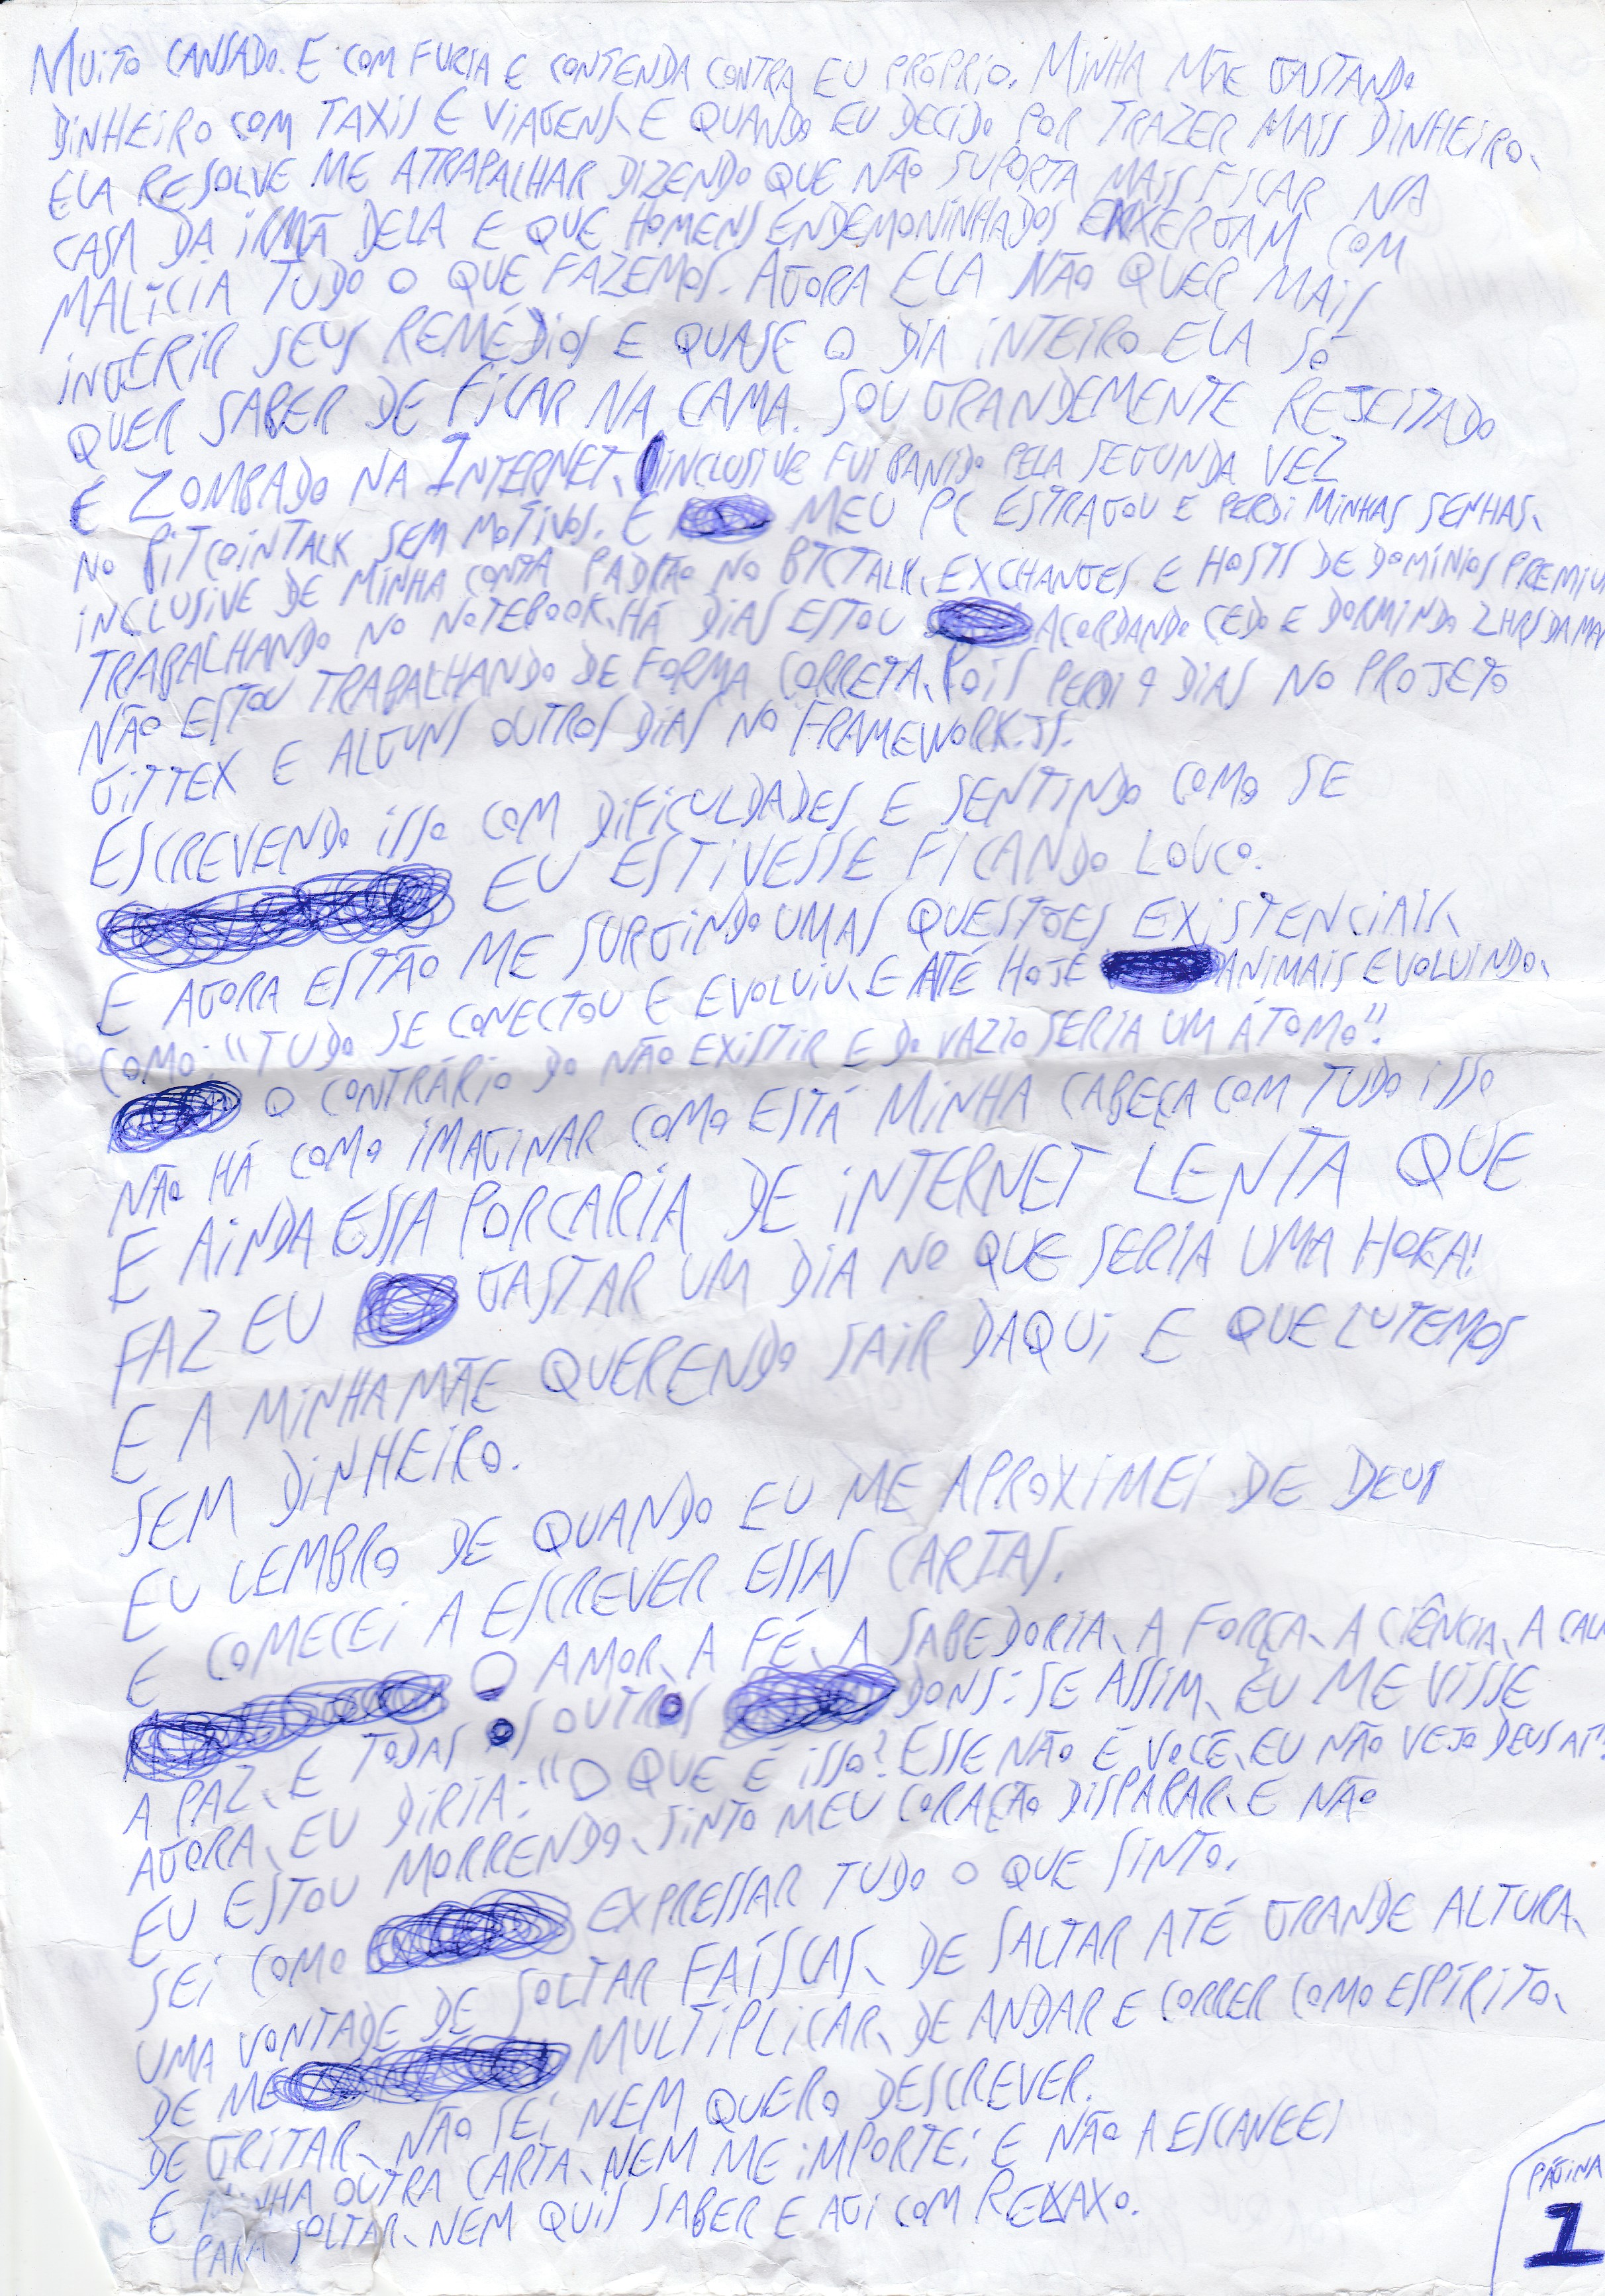 MUITO CANSADO. E COM FURIA E CONTENDA CONTRA EU PRÓPRIO. MINHA MÃE GASTANDO
DINHEIRO COM TAXIS E VIAGENS, E QUANDO EU DECIDO POR TRAZER MAIS DINHEIRO,
ELA RESOLVE ME ATRAPALHAR DIZENDO QUE NÃO SUPORTA MAIS FICAR NA
CASA DA IRMÃ DELA E QUE HOMENS ENDEMONINHADOS ENXERGAM COM
MALÍCIA TUDO O QUE FAZEMOS. AGORA ELA NÃO QUER MAIS
INGERIR SEUS REMÉDIOS E QUASE O DIA INTEIRO ELA SÓ
QUER SABER DE FICAR NA CAMA. SOU GRANDEMENTE REJEITADO
E ZOMBADO NA INTERNET, INCLUSIVE FUI BANIDO PELA SEGUNDA VEZ
NO BITCOINTALK SEM MOTIVOS. E MEU PC ESTRAGOU E PERDI MINHAS SENHAS,
INCLUSIVE DE MINHA CONTA PADRÃO NO BTCTALK, EXCHANGES E HOSTS DE DOMÍNIOS PREMIU
TRABALHANDO NO NOTEBOOK, HÁ DIAS ESTOU ACORDANDO CEDO E DORMINDO 2HRS DA MA
NÃO ESTOU TRABALHANDO DE FORMA CORRETA, POIS PERDI 9 DIAS NO PROJETO
GITTEX E ALGUNS OUTROS DIAS NO FRAMEWORK.JS.
ESCREVENDO ISSO COM DIFICULDADES E SENTINDO COMO SE
EU ESTIVESSE FICANDO LOUCO.
E AGORA ESTÃO ME SURGINDO UMAS QUESTÕES EXISTENCIAIS,
COMO: "TUDO SE CONECTOU E EVOLUIU, E ATÉ HOJE ANIMAIS EVOLUINDO,
O CONTRÁRIO DO NÃO EXISTIR E DO VAZIO SERIA UM ÁTOMO"!
NÃO HÁ COMO IMAGINAR COMO ESTÁ MINHA CABEÇA COM TUDO ISSO
E AINDA ESSA PORCARIA DE INTERNET LENTA QUE
FAZ EU GASTAR UM DIA NO QUE SERIA UMA HORA!
E A MINHA MÃE QUERENDO SAIR DAQUI E QUE LUTEMOS
SEM DINHEIRO.
EU LEMBRO DE QUANDO EU ME APROXIMEI DE DEUS
E COMECEI A ESCREVER ESSAS CARTAS.
O AMOR, A FÉ, A SABEDORIA, A FORÇA, A CIÊNCIA, A CAL
A PAZ, E TODAS OS OUTROS DONS: SE ASSIM, EU ME VISSE
AGORA, EU DIRIA: "O QUE É ISSO? ESSE NÃO É VOCE, EU NÃO VEJO DEUS
EU ESTOU MORRENDO, SINTO MEU CORAÇÃO DISPARAR, E NÃO
SEI COMO EXPRESSAR TUDO O QUE SINTO.
UMA VONTADE DE SOLTAR FAÍSCAS, DE SALTAR ATÉ GRANDE ALTURA,
DE ME MULTIPLICAR, DE ANDAR E CORRER COMO ESPÍRITO,
DE GRITAR, NÃO SEI NEM QUERO DESCREVER.
E MINHA OUTRA CARTA, NEM ME IMPORTEI E NÃO A ESCANEEI
PARA SOLTAR, NEM QUIS SABER E AGI COM RELAXO.
PÁGINA
1